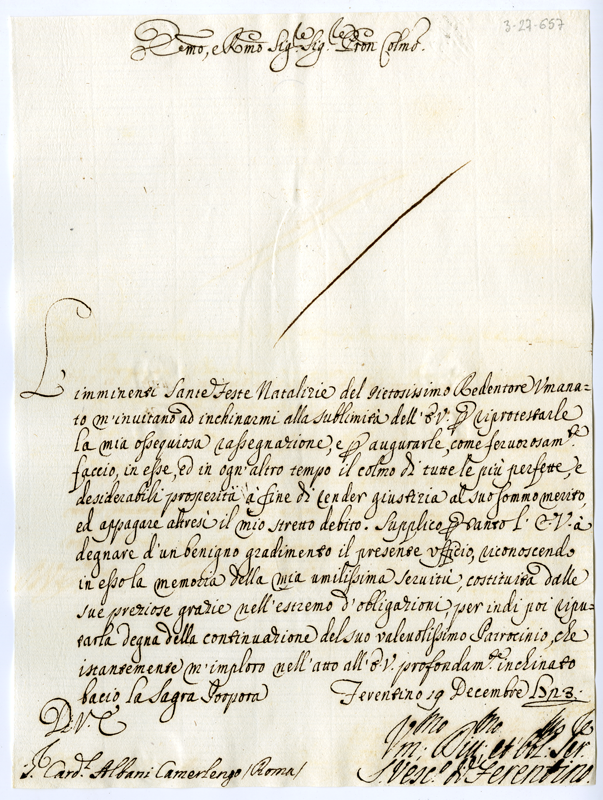 3-27-657
Emo, e Rmo Sig.re Sig.re Pron Colmo.
L'imminenti Sante Feste Natalizie del pietosissimo Redentore Vmana=
to m'invitano ad inchinarmi alla sublimità dell'E.V. p riprotestarle
la mia ossequiosa rassegnazione, e p augurarle, come fervorosam.te
faccio, in esse, ed in ogn'altro tempo il colmo di tutte le più perfette, e
desiderabili prosperità à fine di render giustizia al suo sommo merito,
ed appagare altresì il mio stretto debito. Supplico p tanto l'E.V. à
degnare d'un benigno gradimento il presente vfficio, riconoscendo
in esso la memoria della mia umilissima servitù, costituita dalle
sue preziose grazie nell'estremo d'obligazioni, per indi poi ripu=
tarla degna della continuazione del suo valevolissimo Patrocinio, che
istantemente m'imploro nell'atto all'E.V. profondam.te inchinato
bacio la Sagra Porpora Ferentino 19 Decembre
D. V. E.
Vm: Div: et Obl. Ser
S. Card.l Albani Camerlengo (Roma)
Vesc.o di Ferentino.